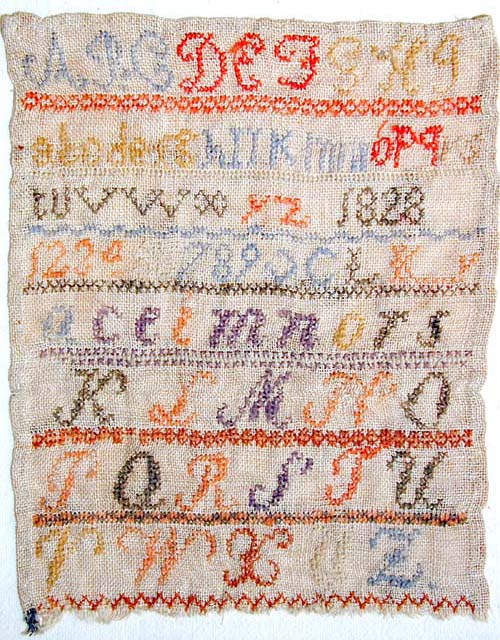 A B C D E F G H I
a b c d e f g h i j k l m n o p q r s
t u v w x y z 1828
1 2 3 4 7 8 9 0
a c e i m n o r s
K L M N O
P Q R S T U
V W X Z